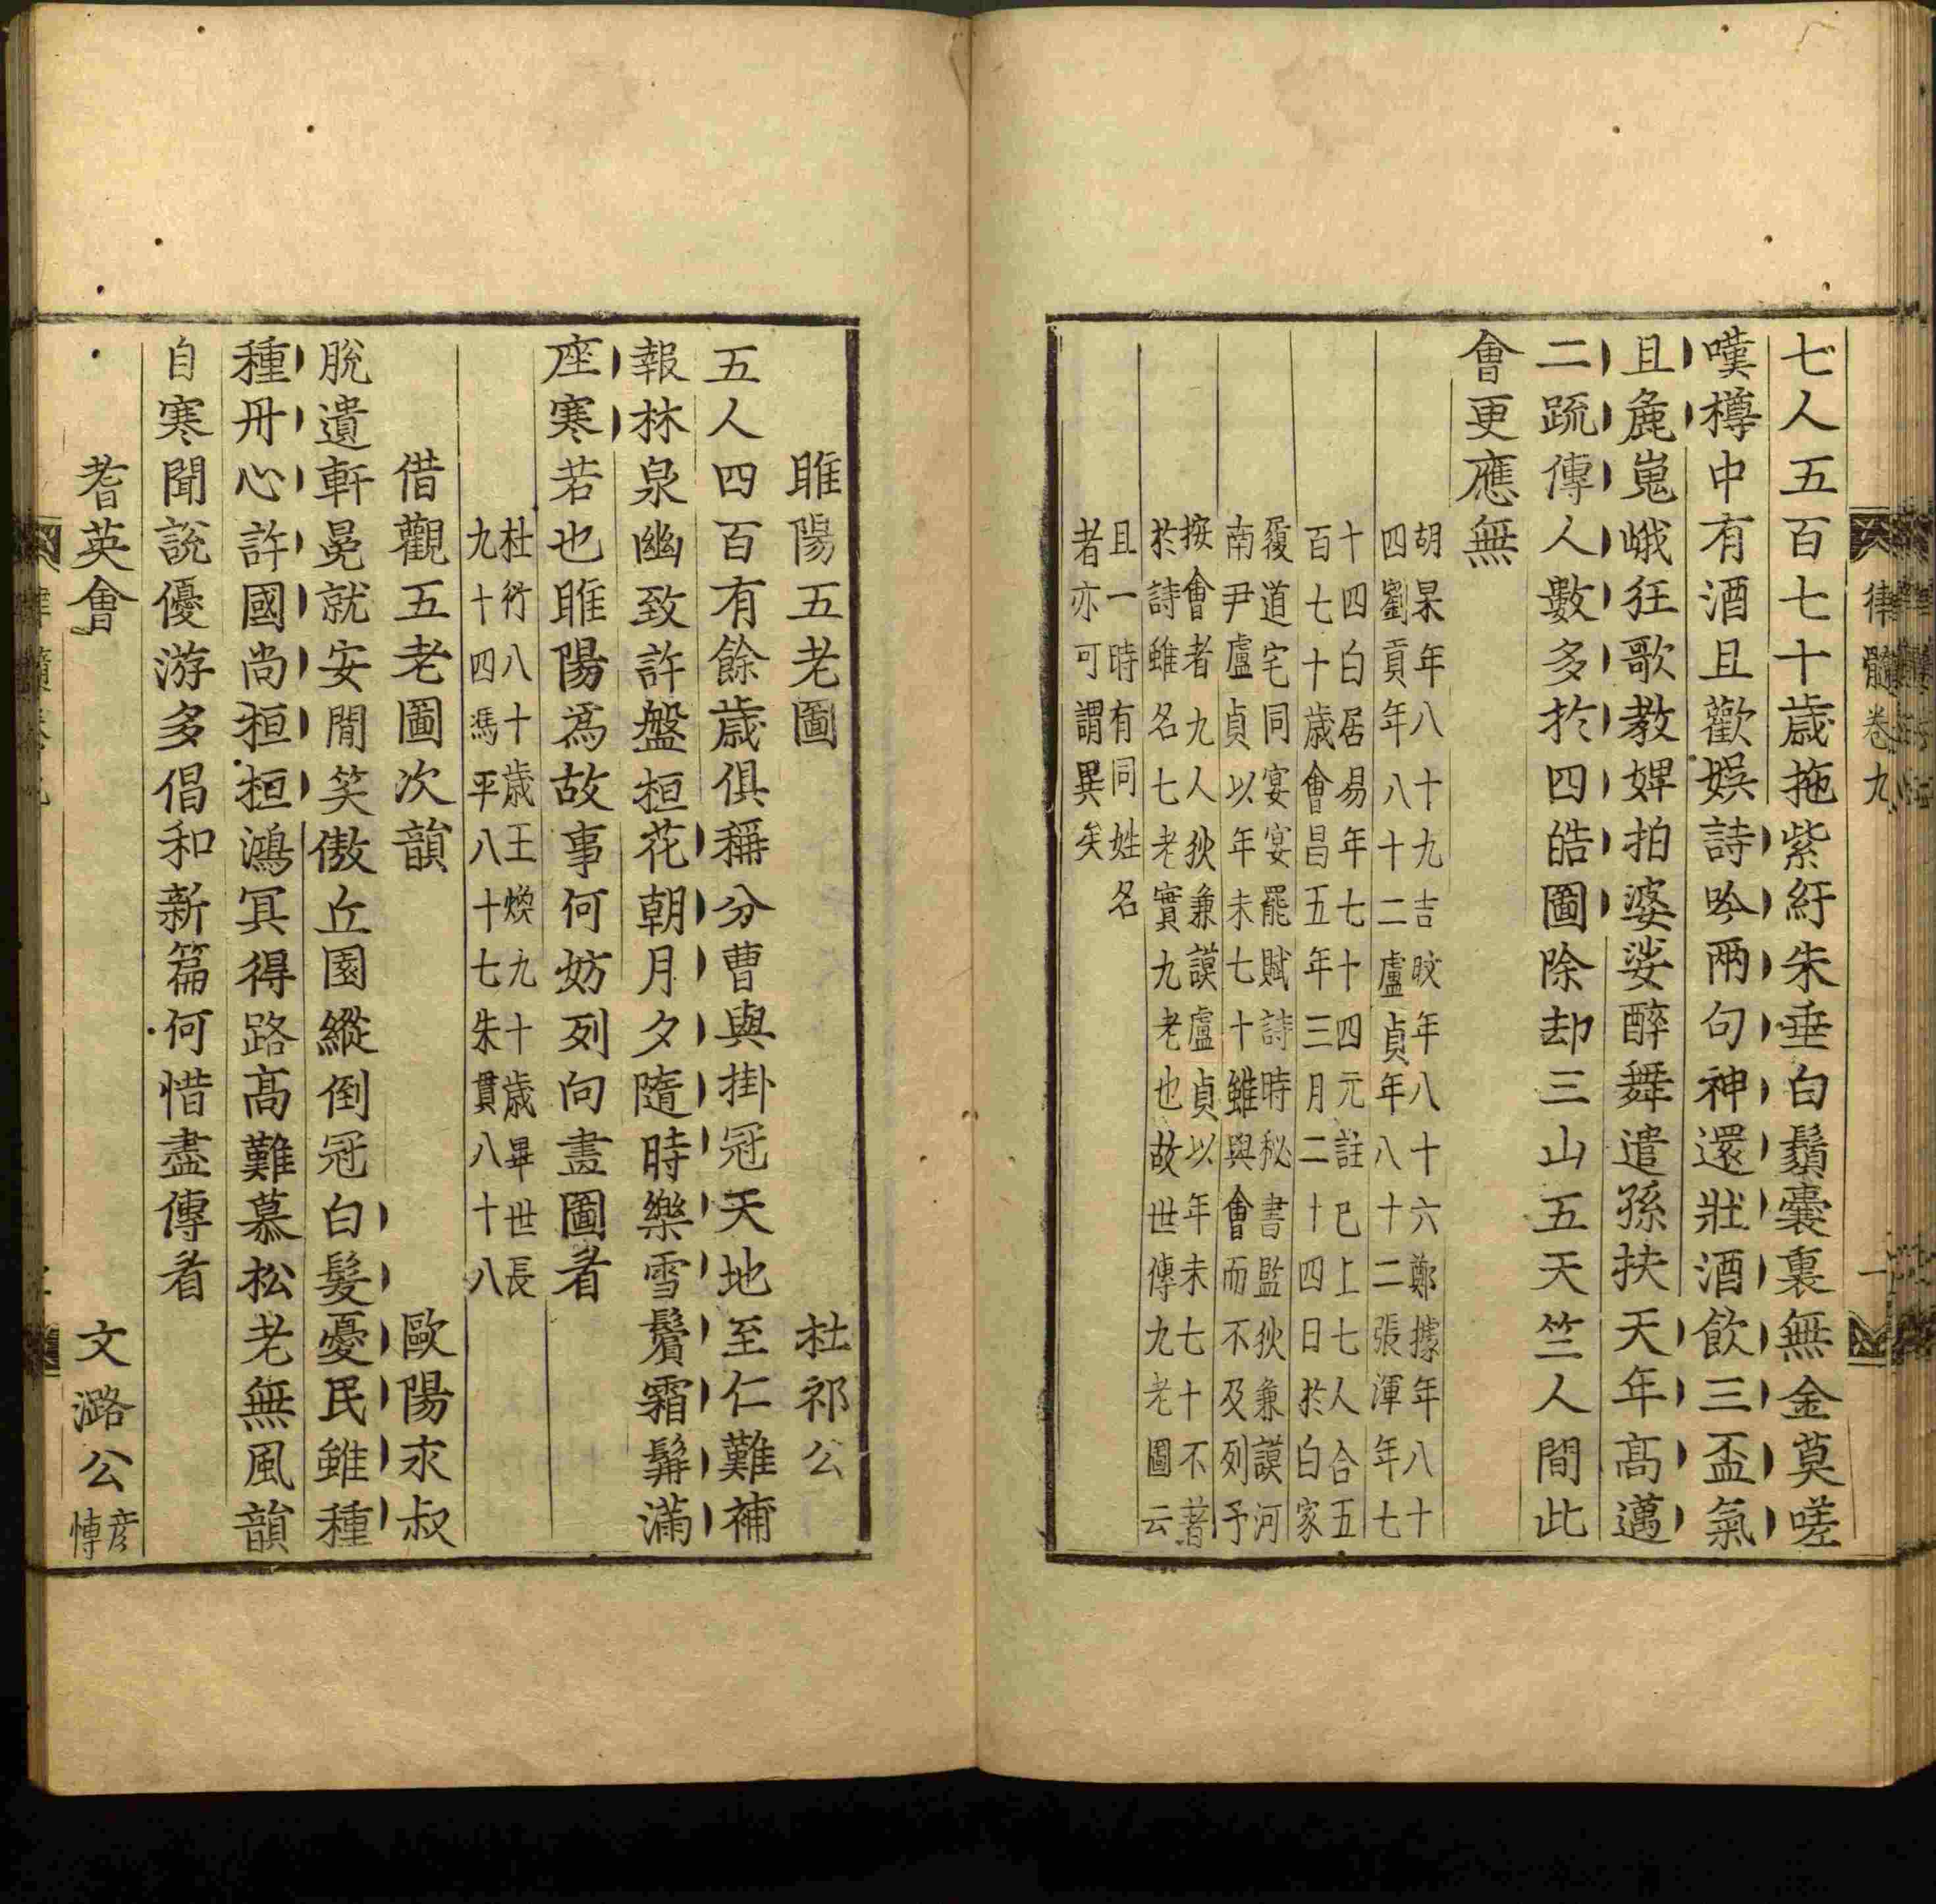 律髓卷九
一
七人五百七十歲拖紫紆朱垂白鬚囊裏無金莫嗟
嘆樽中有酒且歡娛詩吟兩句神還壯酒飲三盃氣
且麁嵬峨狂歌教婢拍婆娑醉舞遣孫扶天年高邁
二疏傳人數多於四皓圖除却三山五天竺人間此
會更應無
胡杲年八十九吉旼年八十六鄭據年八十
四劉貢年八十二盧貞年八十二張渾年七
十四白居易年七十四元註已上七人合五
百七十歲會昌五年三月二十四日於白家
履道宅同宴宴罷賦詩時秘書監狄兼謨河
南尹盧貞以年未七十雖與會而不及列予
按會者九人狄兼謨盧貞以年未七十不著
於詩雖名七老實九老也故世傳九老圖云
且一時有同姓名
者亦可謂異矣
睢陽五老圖 杜祁公
五人四百有餘歲俱稱分曹與掛冠天地至仁難補
報林泉幽致許盤桓花朝月夕隨時樂雪鬢霜髯滿
座寒若也睢陽爲故事何妨列向畫圖看
杜衍八十歲王煥九十歲畢世長
九十四馮平八十七朱貫八十八
借觀五老圖次韻 歐陽永叔
脫遺軒冕就安閒笑傲丘園縱倒冠白髮憂民雖種
種丹心許國尚桓桓鴻冥得路高難慕松老無風韻
自寒聞說優游多倡和新篇何惜盡傳看
耆英會 文潞公彦
博